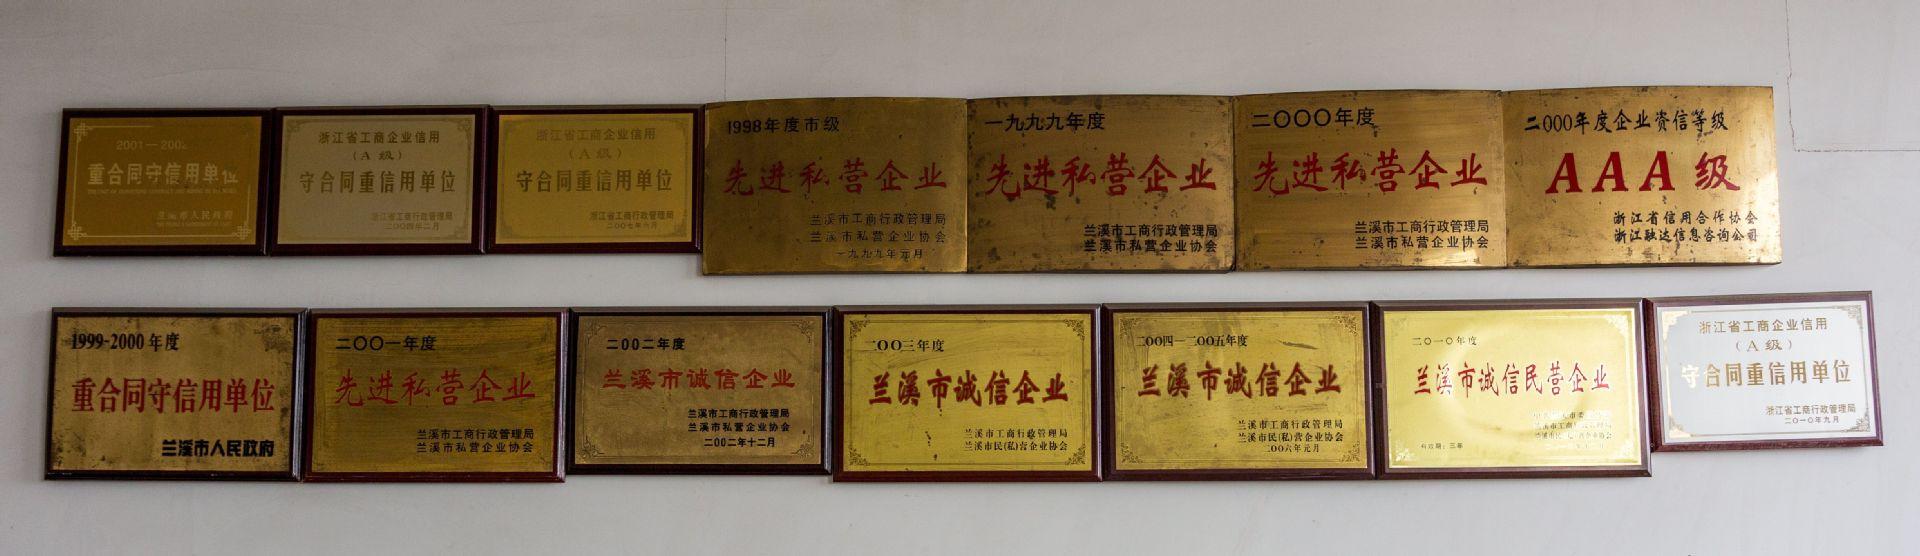 2001—2002
重合同守信用单位
兰溪市人民政府
浙江省工商企业信用
（A级）
守合同重信用单位
浙江省工商行政管理局
二00四年二月
浙江省工商企业信用
（A级）
守合同重信用单位
浙江省工商行政管理局
二00七年六月
1998年度市级
先进私营企业
兰溪市工商行政管理局
兰溪市私营企业协会
一九九九年元月
一九九九年度
先进私营企业
兰溪市工商行政管理局
兰溪市私营企业协会
二〇〇〇年度
先进私营企业
兰溪市工商行政管理局
兰溪市私营企业协会
二000年度企业资信等级
AAA级
浙江省信用合作协会
浙江融达信息咨询公司
1999-2000年度
重合同守信用单位
兰溪市人民政府
二〇〇一年度
先进私营企业
兰溪市工商行政管理局
兰溪市私营企业协会
二00二年度
兰溪市诚信企业
兰溪市工商行政管理局
兰溪市私营企业协会
二00二年十二月
二00三年度
兰溪市诚信企业
兰溪市工商行政管理局
兰溪市民(私)营企业协会
二00四—二00五年度
兰溪市诚信企业
兰溪市工商行政管理局
兰溪市民(私)营企业协会
二00六年元月
二0一0年度
兰溪市诚信民营企业
有效期：三年
浙江省工商企业信用
（A级）
守合同重信用单位
浙江省工商行政管理局
二0一0年九月